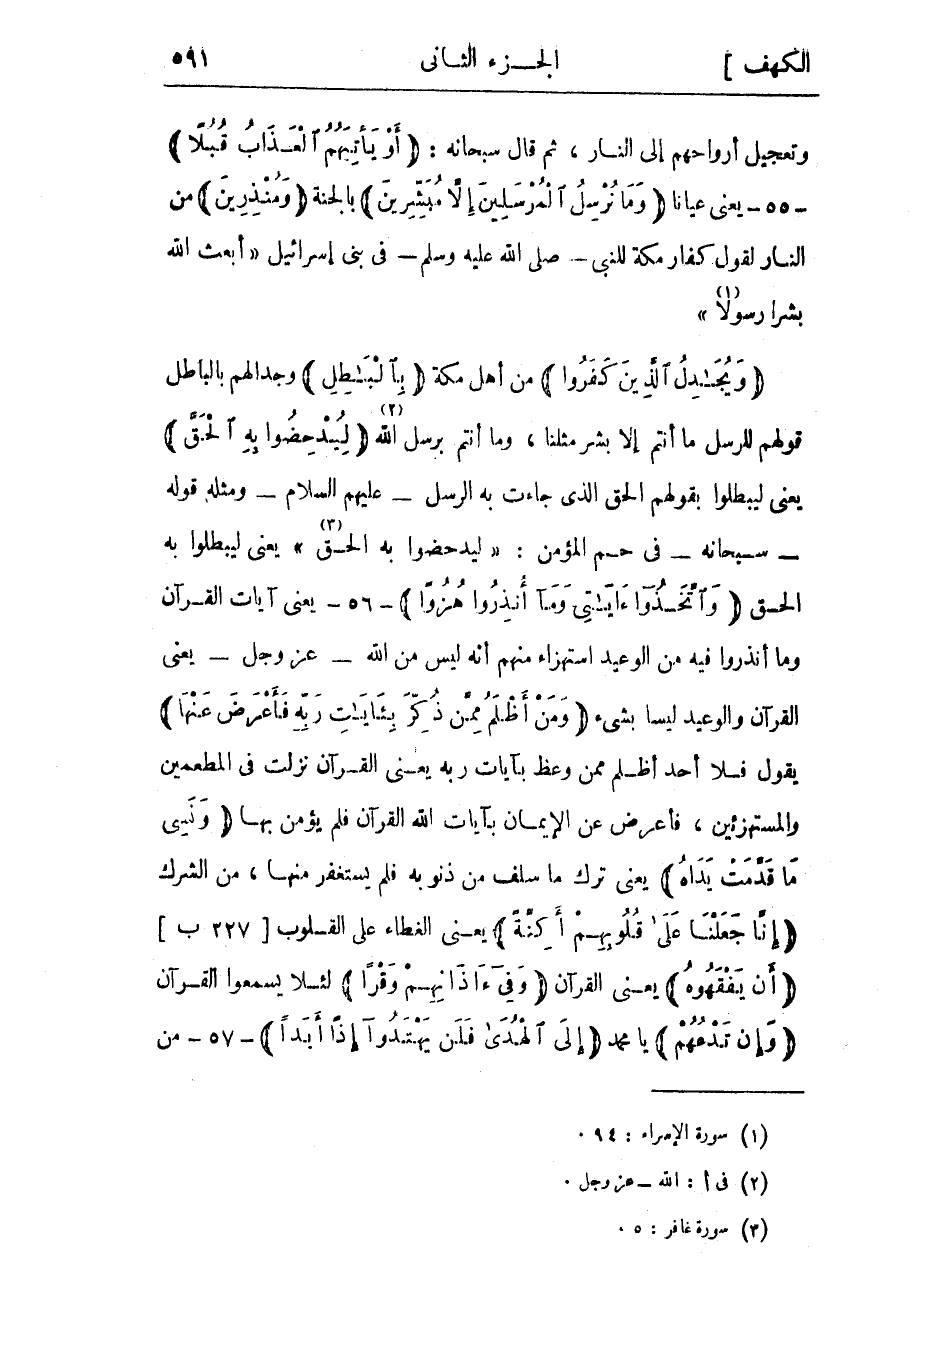 الكهف ] الجـــزء الثـانى ٥٩١
وتعجيل أرواحهم إلى النـار ، ثم قال سبحانه : ﴿ أَوْ يَأْتِيَهُمُ ٱلْعَـذَابُ قُبُلًا ﴾
- ٥٥ - يعنى عيانا ﴿ وَمَا نُرْسِلُ ٱلْمُرْسَلِينَ إِلَّا مُبَشِّرِينَ ﴾ بالجنة ﴿ وَمُنْذِرِينَ ﴾ من
النـار لقول كفار مكة للنبى — صلى الله عليه وسلم — فى بنى إسرائيل « أبعث الله
بشرا رسولا (١) »
﴿ وَيُجَـٰدِلُ ٱلَّذِينَ كَفَرُوا ﴾ من أهل مكة ﴿ بِٱلْبَـٰطِلِ ﴾ وجدالهم بالباطل
قولهم للرسل ما أنتم إلا بشر مثلنا ، وما أنتم برسل الله (٢) ﴿ لِيُدْحِضُوا بِهِ ٱلْحَقَّ ﴾
يعنى ليبطلوا بقولهم الحق الذى جاءت به الرسل — عليهم السلام — ومثله قوله
— سـبحانه — فى حـم المؤمن : « ليدحضوا به الحـق (٣) » يعنى ليبطلوا به
الحـق ﴿ وَٱتَّخَـذُوٓا ءَايَـٰتِى وَمَآ أُنذِرُوا هُزُوًا ﴾ - ٥٦ - يعنى آيات القـرآن
وما أنذروا فيه من الوعيد استهزاء منهم أنه ليس من الله — عز وجل — يعنى
القرآن والوعيد ليسا بشىء ﴿ وَمَنْ أَظْلَمُ مِمَّن ذُكِّرَ بِـَٔايَـٰتِ رَبِّهِ فَأَعْرَضَ عَنْهَا ﴾
يقول فـلا أحد أظـلم ممن وعظ بآيات ربه يعـنى القـرآن نزلت فى المطعمين
والمستهزئين ، فأعرض عن الإيمـان بآيات الله القرآن فلم يؤمن بهـا ﴿ وَنَسِىَ
مَا قَدَّمَتْ يَدَاهُ ﴾ يعنى ترك ما سلف من ذنوبه فلم يستغفر منهـا ، من الشرك
﴿ إِنَّا جَعَلْنَـا عَلَىٰ قُلُوبِهِـمْ أَكِنَّةً ﴾ يعـنى الغطاء على القـلوب [ ٢٢٧ ب ]
﴿ أَن يَفْقَهُوهُ ﴾ يعـنى القرآن ﴿ وَفِىٓ ءَاذَانِهِـمْ وَقْرًا ﴾ لئـلا يسمعوا القـرآن
﴿ وَإِن تَـدْعُهُمْ ﴾ يا محمد ﴿ إِلَى ٱلْهُدَىٰ فَلَن يَهْتَدُوٓا إِذًا أَبَدًا ﴾ - ٥٧ - من
(١) سورة الإسراء : ٩٤ ٠
(٢) فى أ : الله — عز وجل ٠
(٣) سورة غافر : ٥ ٠